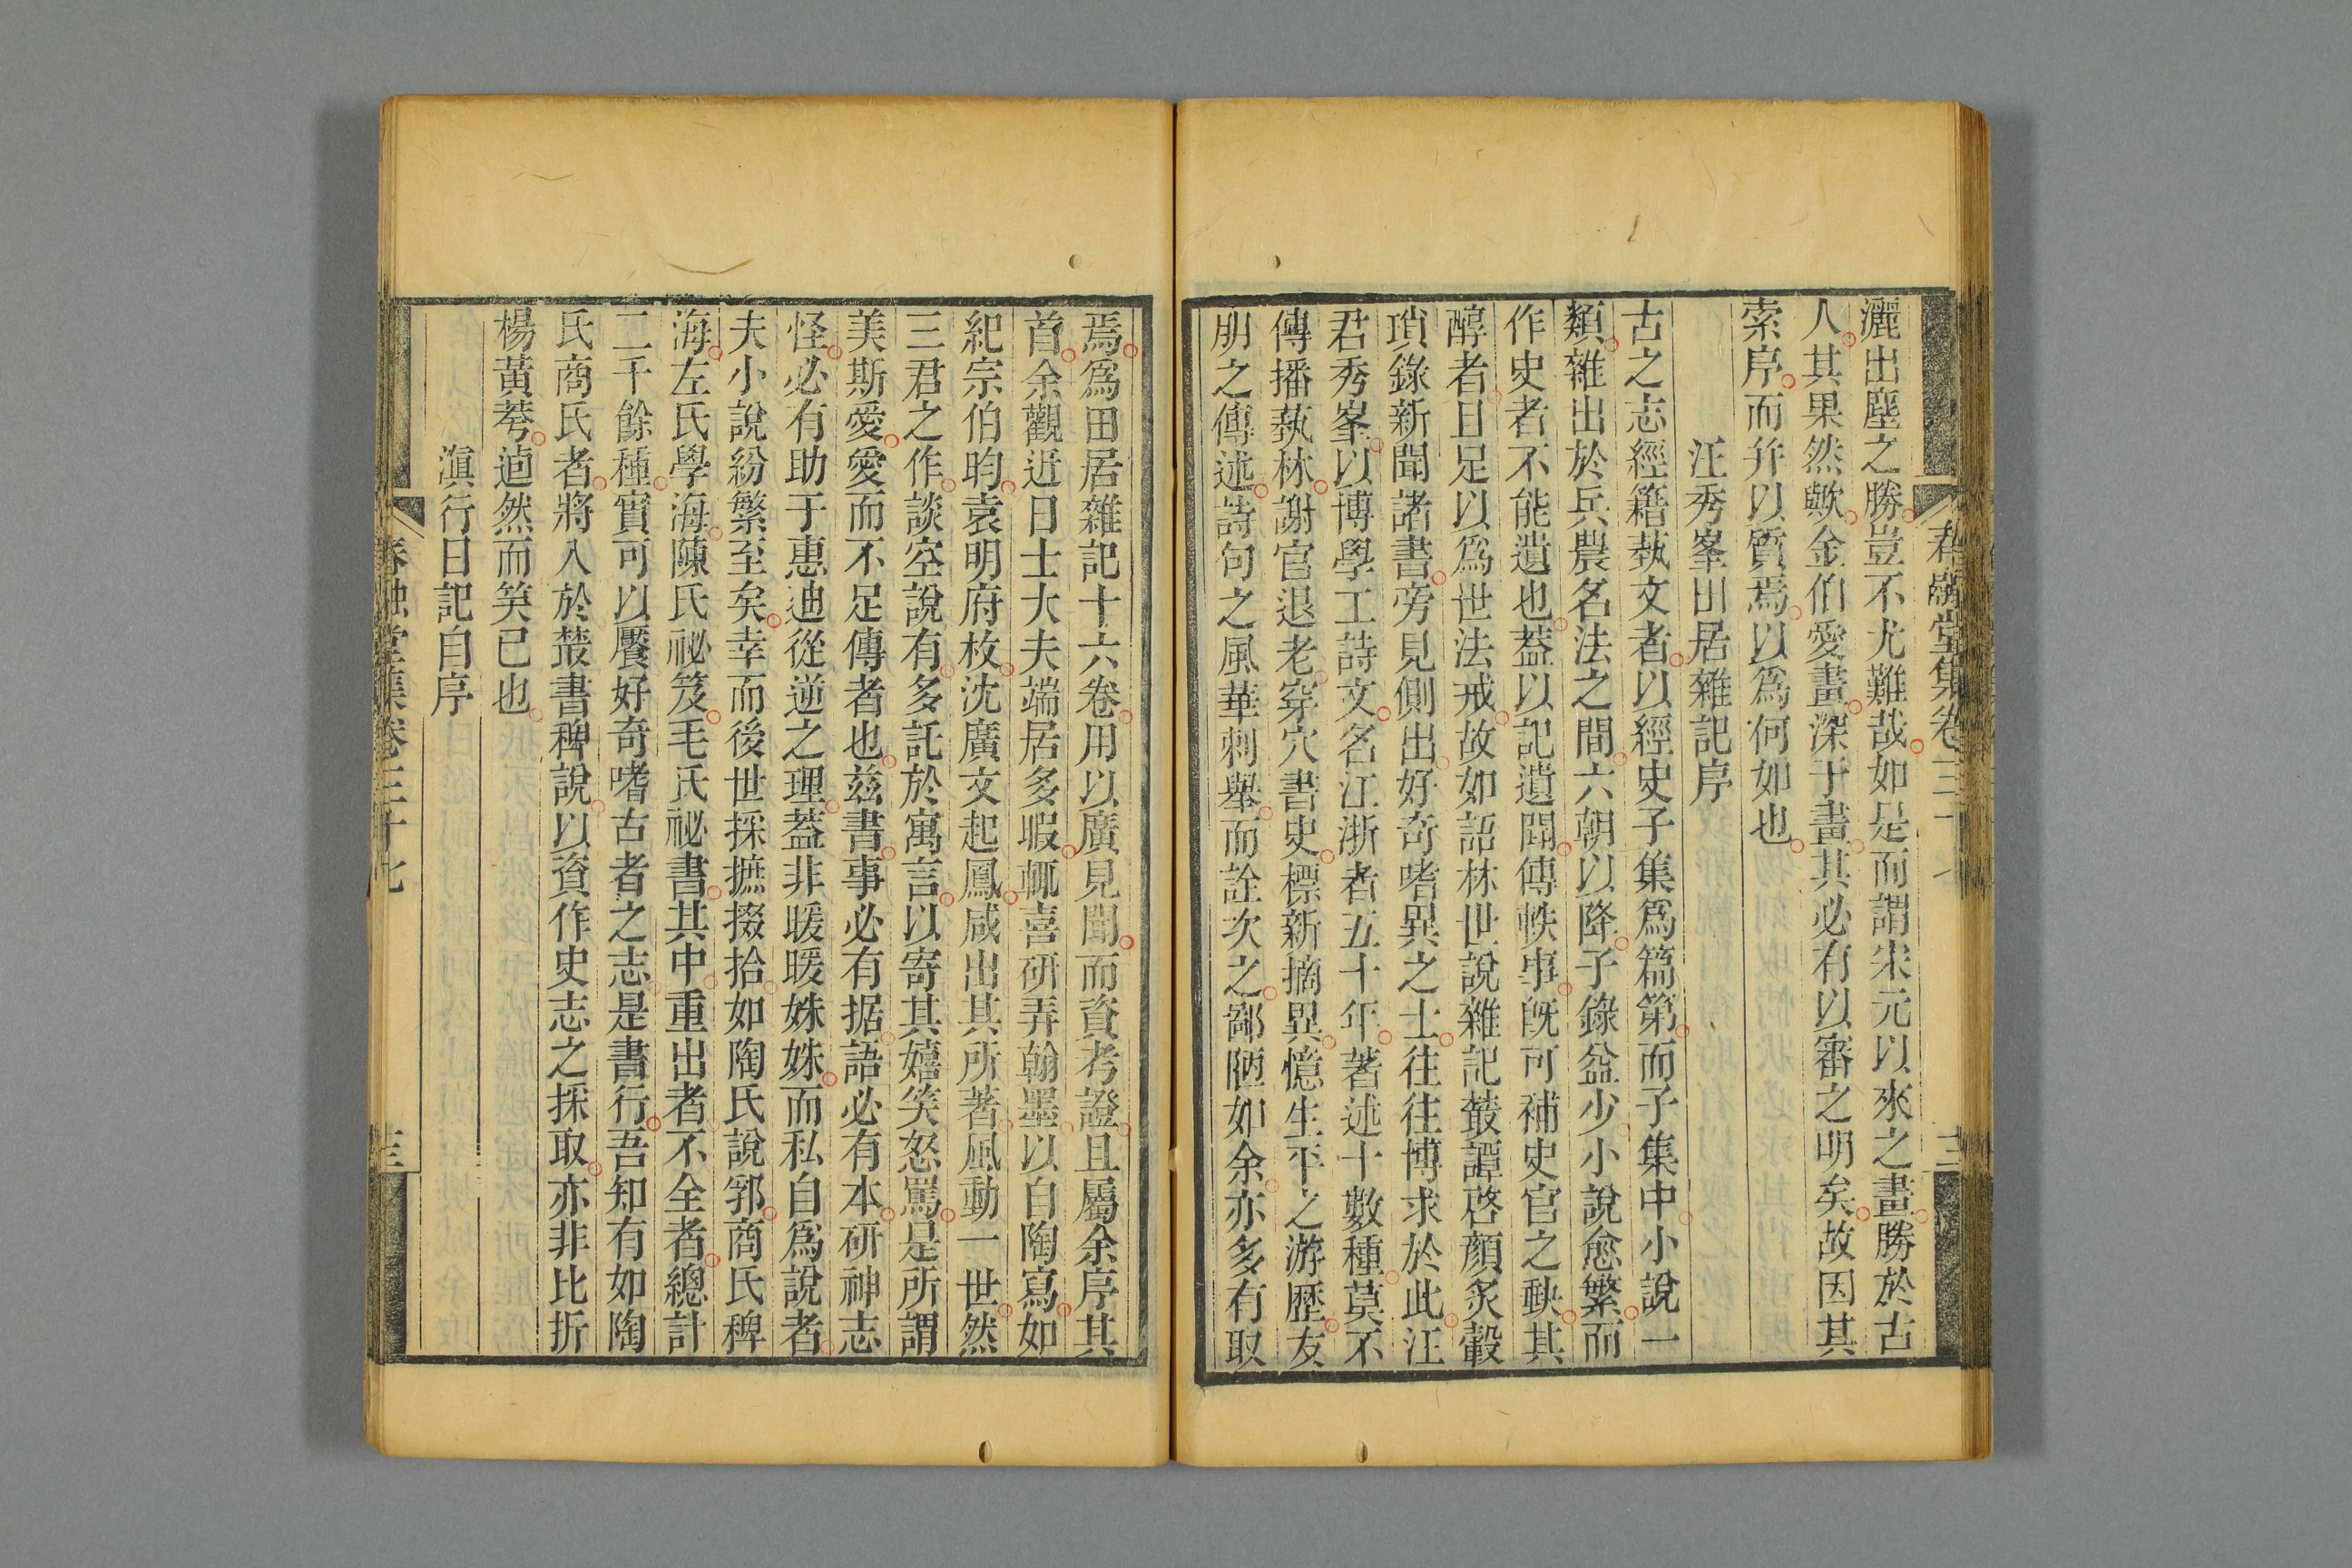 灑出塵之勝豈不尤難哉如是而謂宋元以來之畫勝於古
人其果然歟金伯愛畫深于畫其必有以審之明矣故因其
索序而幷以質焉以爲何如也
汪秀峯田居雜記序
古之志經籍蓺文者以經史子集爲篇第而子集中小說一
類雜出於兵農名法之間六朝以降子錄益少小說愈繁而
作史者不能遺也葢以記遺聞傳軼事旣可補史官之缺其
醇者且足以爲世法戒故如語林世說雜記叢譚啓顏炙轂
瑣錄新聞諸書旁見側出好奇嗜異之士往往博求於此汪
君秀峯以博學工詩文名江浙者五十年著述十數種莫不
傳播蓺林謝官退老穿穴書史標新摘異憶生平之游歷友
朋之傳述詩句之風華刺舉而詮次之鄙陋如余亦多有取
焉爲田居雜記十六卷用以廣見聞而資考證且屬余序其
首余觀近日士大夫端居多暇輒喜研弄翰墨以自陶寫如
紀宗伯昀袁明府枚沈廣文起鳳咸出其所著風動一世然
三君之作談空說有多託於寓言以寄其嬉笑怒罵是所謂
美斯愛愛而不足傳者也兹書事必有据語必有本研神志
怪必有助于惠迪從逆之理葢非暖暖姝姝而私自爲說者
夫小說紛繁至矣幸而後世採摭掇拾如陶氏說郛商氏稗
海左氏學海陳氏祕笈毛氏祕書其中重出者不全者總計
二千餘種實可以饜好奇嗜古者之志是書行吾知有如陶
氏商氏者將入於叢書稗說以資作史志之採取亦非比折
楊黃荂逌然而笑已也
滇行日記自序
春融堂集卷三十七